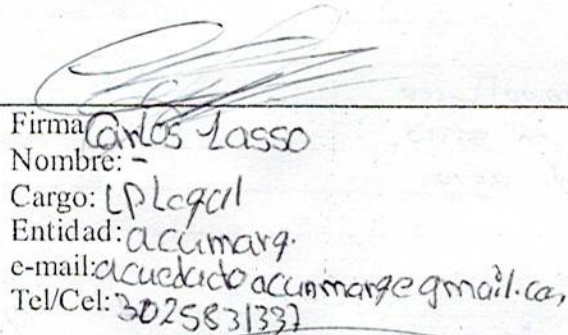 Firma Carlos Lasso
Nombre: -
Cargo: LP Legal
Entidad: acumarg.
e-mail: acueductoacunmarg@gmail.com
Tel/Cel: 3025831337